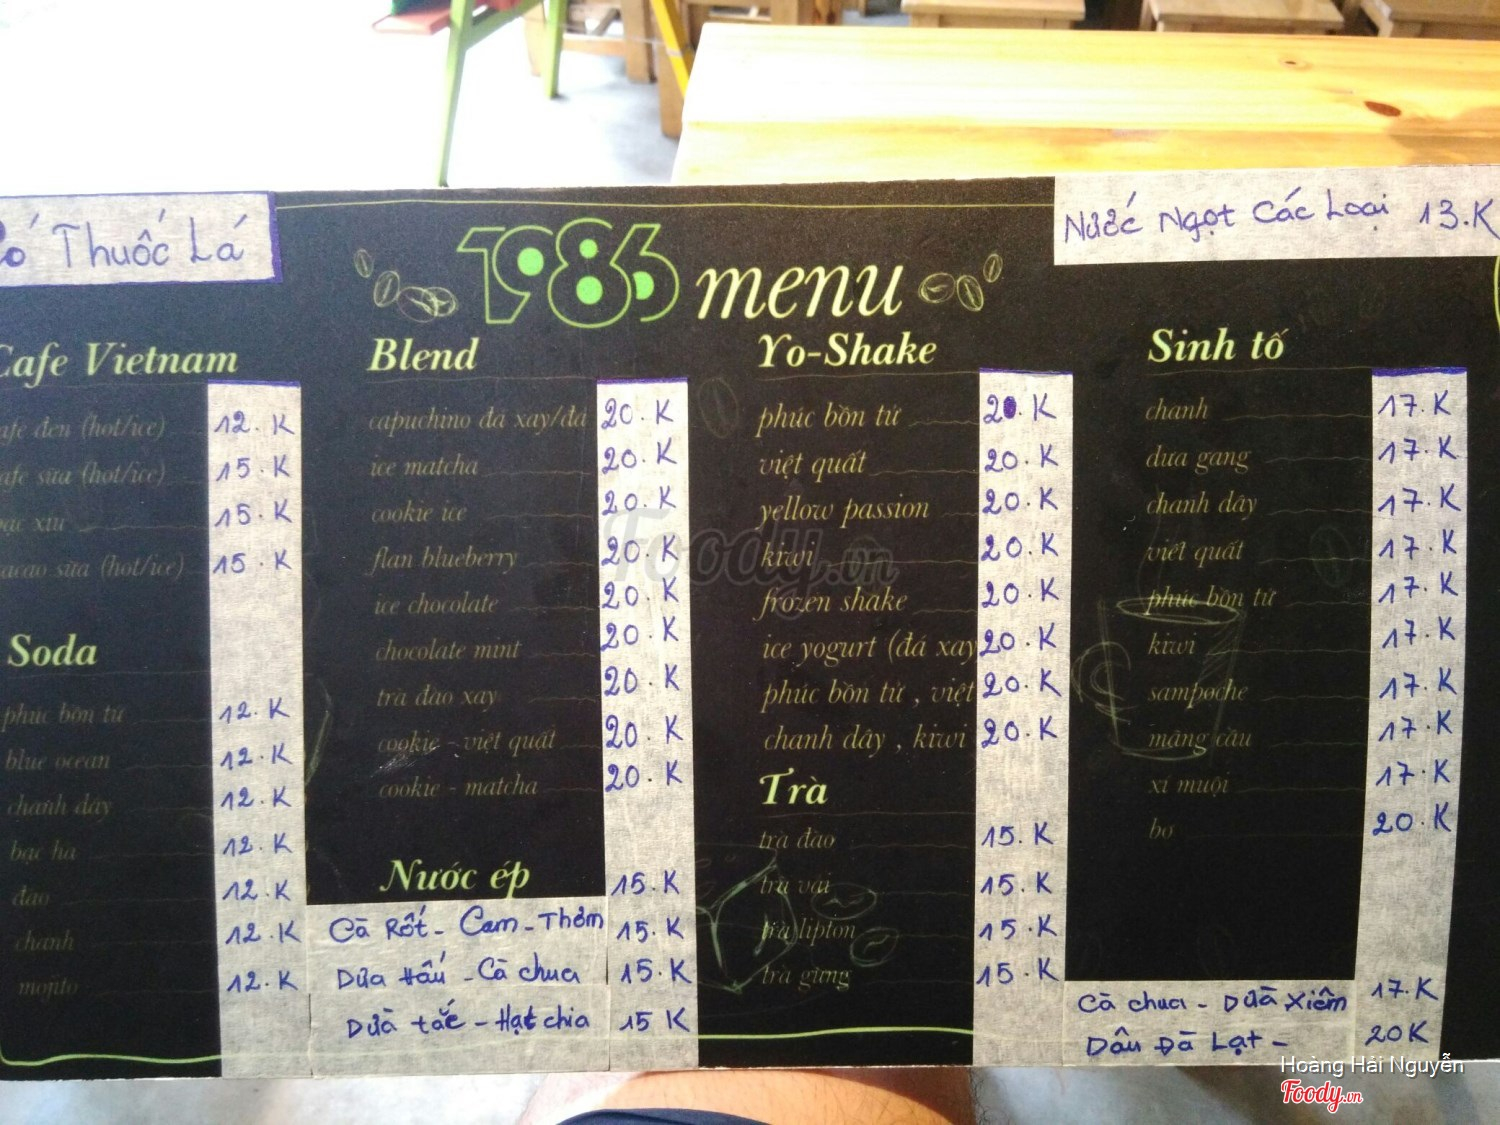 Thuốc Lá
1986 menu
Nước Ngọt Các Loại 13.K
Cafe Vietnam
cafe đen (hot/ice) 12.K
cafe sữa (hot/ice) 15.K
bạc xỉu 15.K
cacao sữa (hot/ice) 15.K
Soda
phúc bồn tử 12.K
blue ocean 12.K
chanh dây 12.K
bạc hà 12.K
đào 12.K
chanh 12.K
mojito 12.K
Blend
capuchino đá xay/đá 20.K
ice matcha 20.K
cookie ice 20.K
flan blueberry 20.K
ice chocolate 20.K
chocolate mint 20.K
trà đào xay 20.K
cookie - việt quất 20.K
cookie - matcha 20.K
Nước ép 15.K
Cà Rốt - Cam - Thơm 15.K
Dưa Hấu - Cà chua 15.K
Dừa tắc - Hạt chia 15 K
Yo-Shake
phúc bồn tử 20.K
việt quất 20.K
yellow passion 20.K
kiwi 20.K
frozen shake 20.K
ice yogurt (đá xay 20.K
phúc bồn tử , việt 20.K
chanh dây , kiwi 20.K
Trà
trà đào 15.K
trà vải 15.K
trà lipton 15.K
trà gừng 15.K
Sinh tố
chanh 17.K
dưa gang 17.K
chanh dây 17.K
việt quất 17.K
phúc bồn tử 17.K
kiwi 17.K
sampoche 17.K
mãng cầu 17.K
xí muội 17.K
bơ 20.K
Cà chua - Dừa Xiêm 17.K
Dâu Đà Lạt - 20K
Foody.vn
Hoàng Hải Nguyễn
Foody.vn